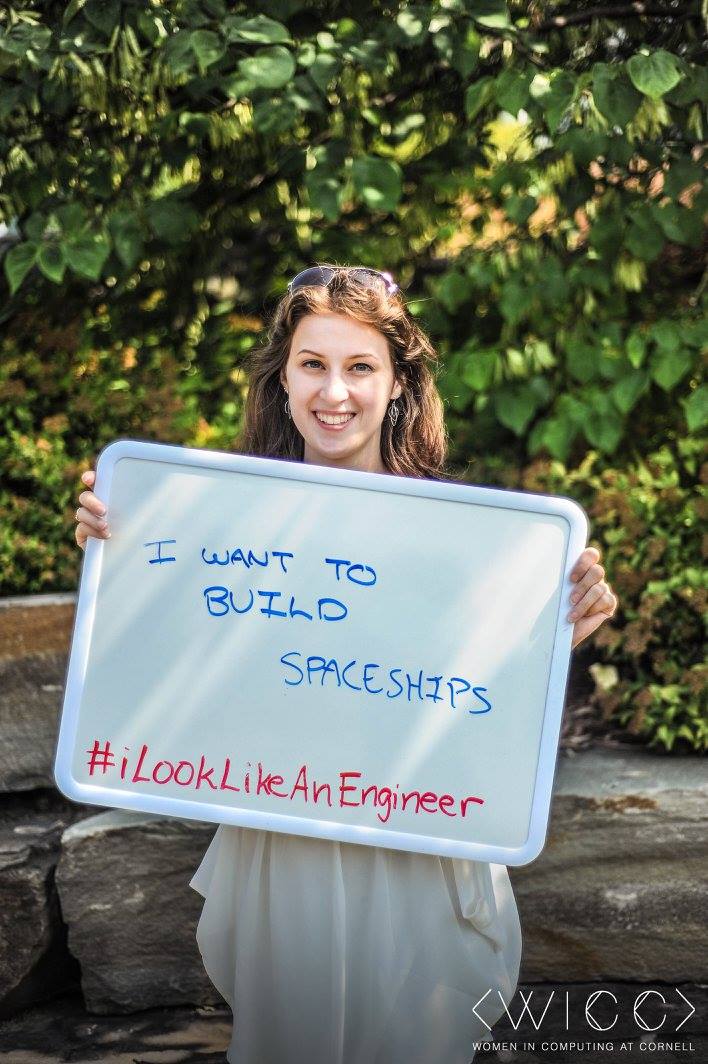 I WANT TO
BUILD
SPACESHIPS
#iLookLikeAnEngineer
<WICC>
WOMEN IN COMPUTING AT CORNELL